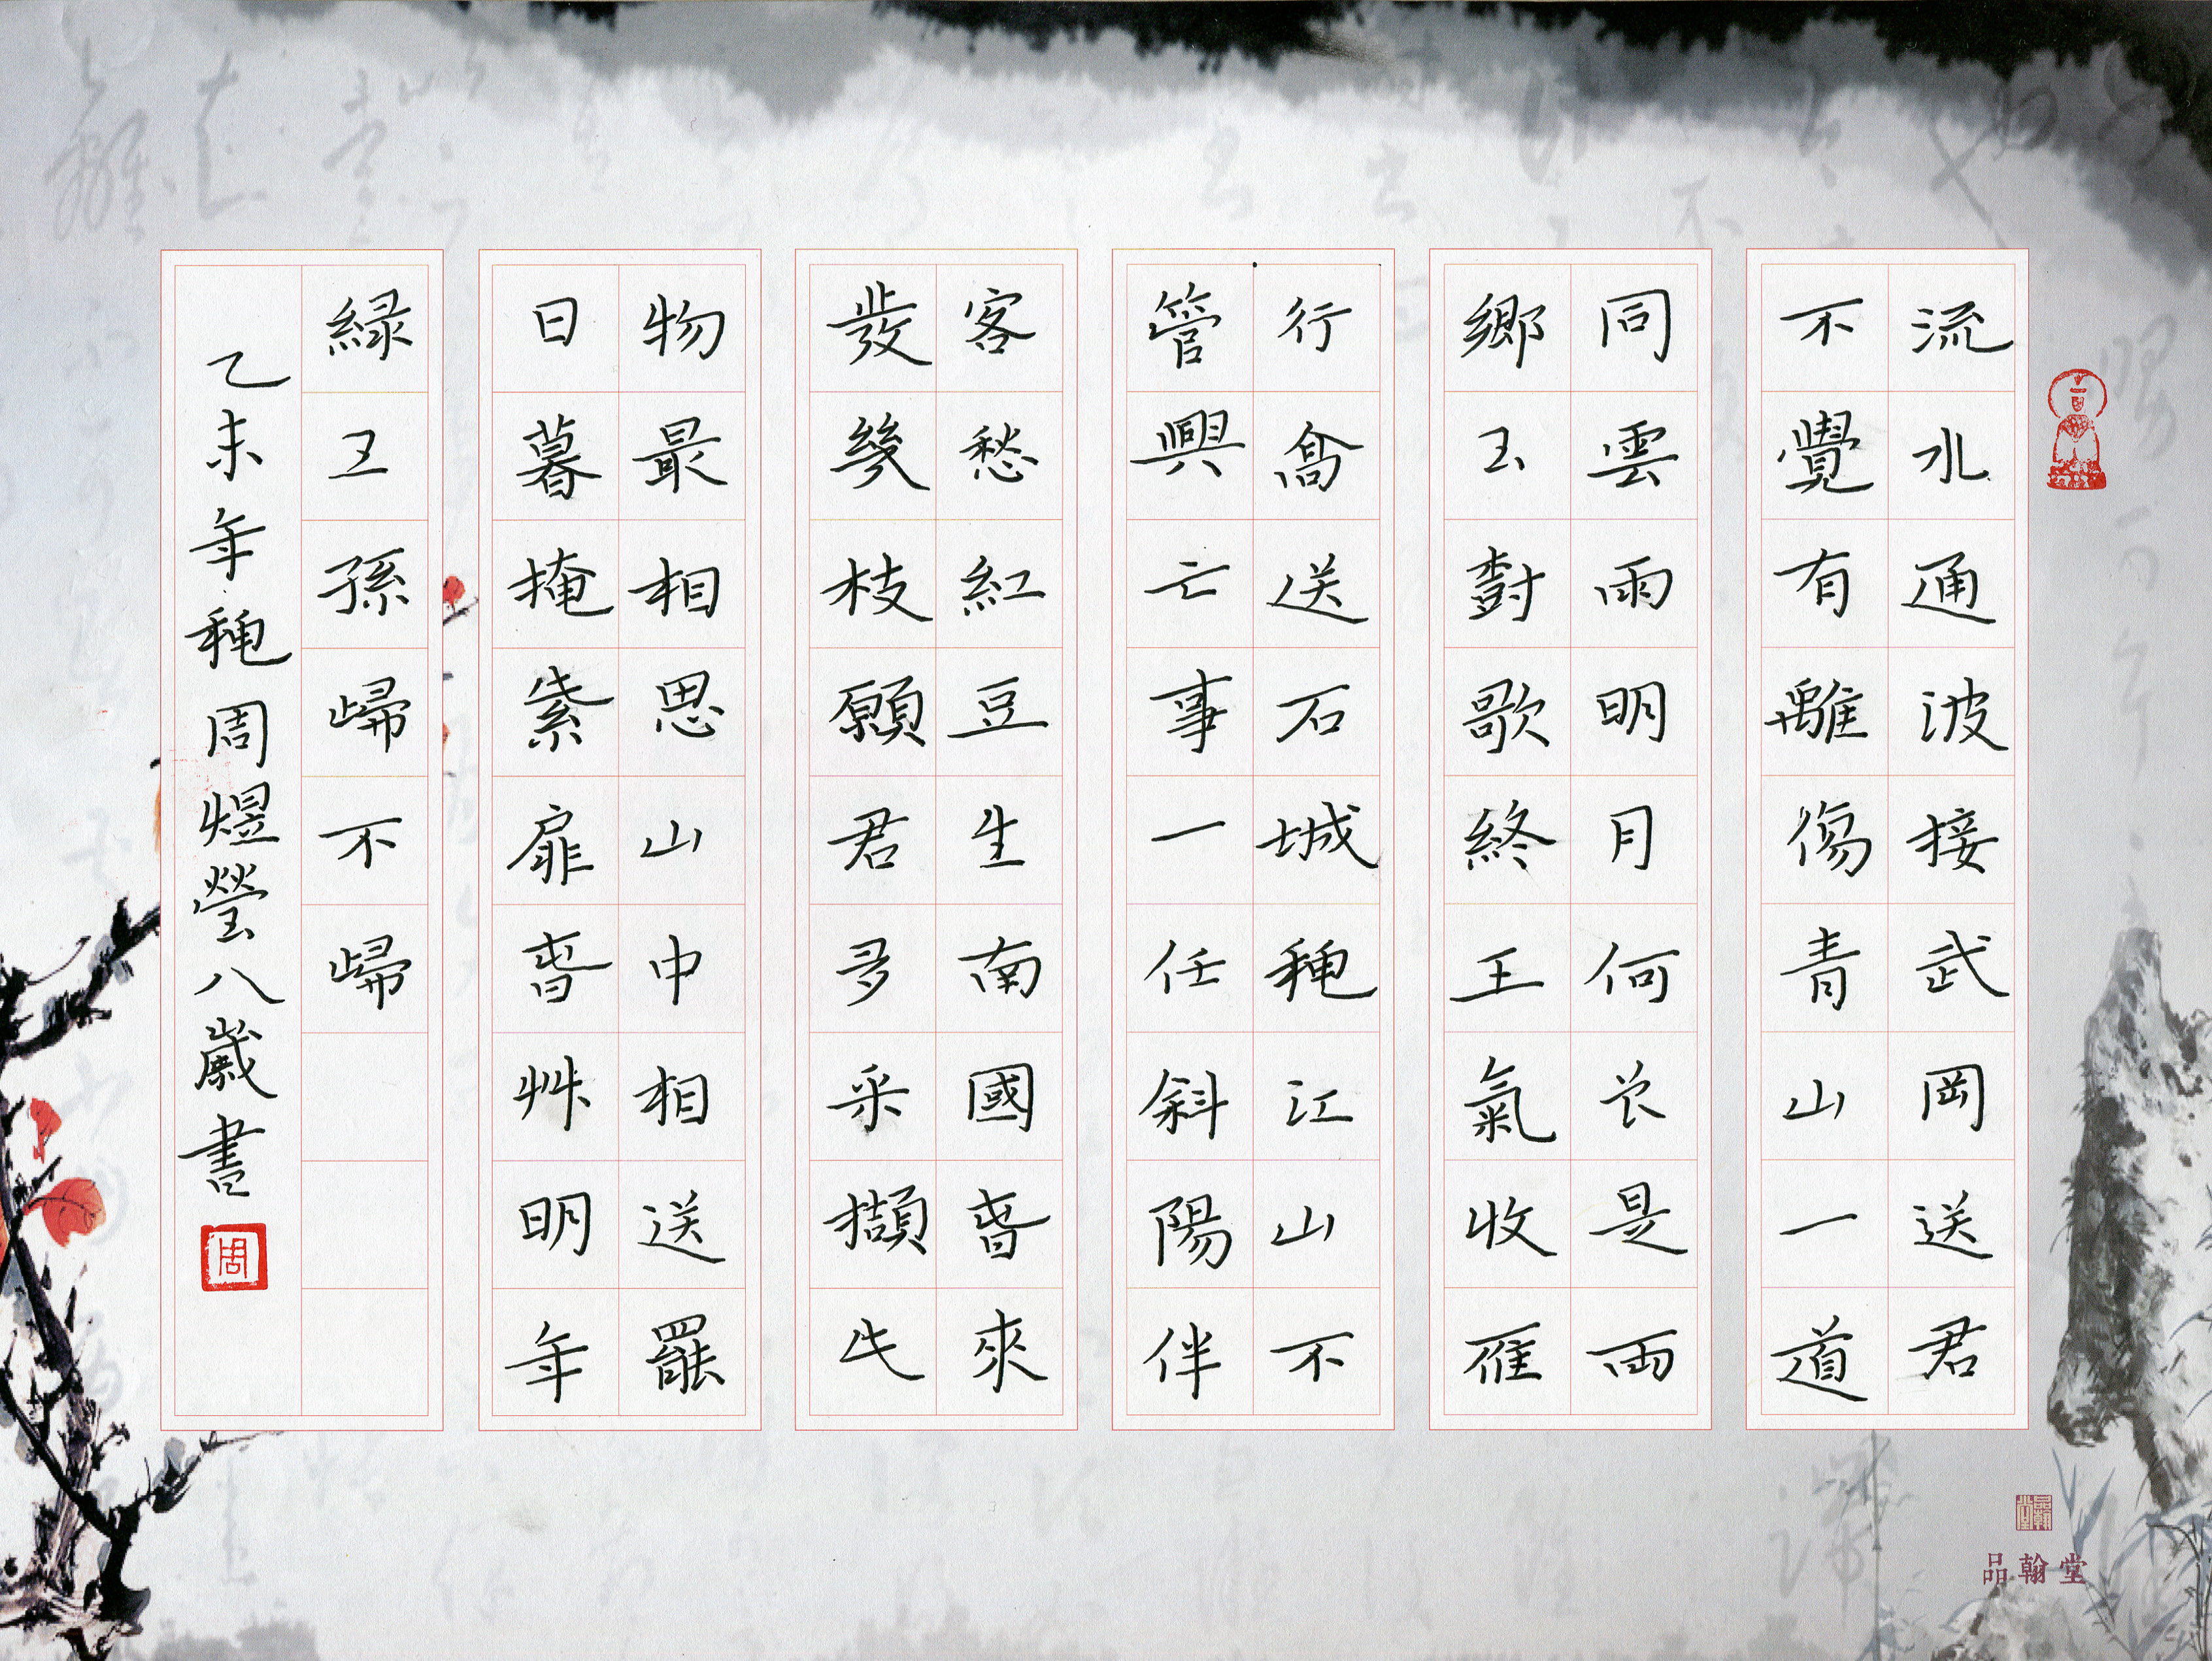 流水通波接武岡送君
不覺有離傷青山一道
同雲雨明月何曾是兩
鄉玉對歌終王氣收雁
行高送石城秋江山不
管興亡事一任斜陽伴
客愁紅豆生南國春來
發幾枝願君多采擷此
物最相思山中相送罷
日暮掩柴扉春草明年
綠王孫歸不歸
乙未年秋周煜瑩八歲書
周
品翰堂
品翰堂